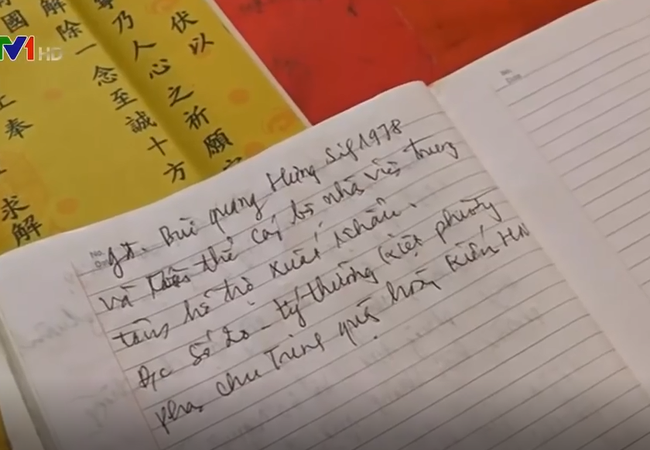 VTV1 HD
伏以
寧乃人心之祈願
解除一念至誠十方
國
上奉
求解
No.
Date
gđ. Bùi quang Hưng Sif 1978
và tập thể cán bộ nhân viên trung
tâm hỗ trợ xuất khẩu.
Đ/c Số 20 - Lý thường kiệt phường
phan chu Trinh quận hoàn kiếm HN
No.
Date